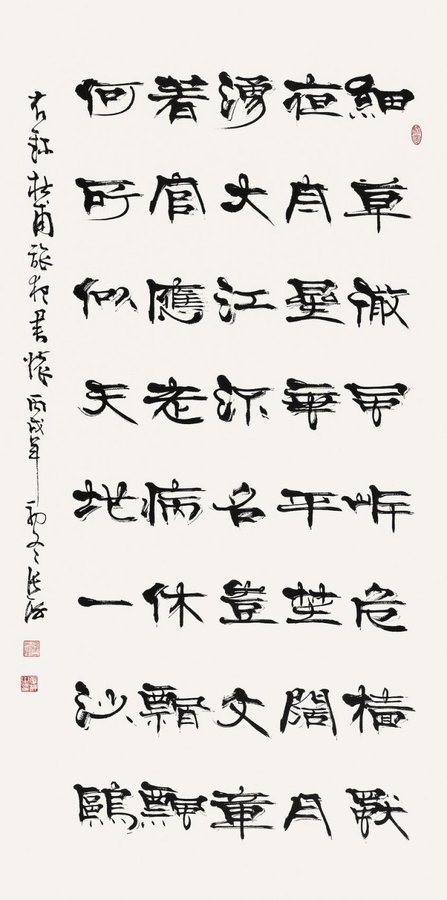 細草微風岸危檣獨
夜舟星垂平埜闊月
湧大江流名豈文章
著官應老病休飄飄
何所似天地一沙鷗
右録杜甫旅夜書懷丙戌年初冬張海